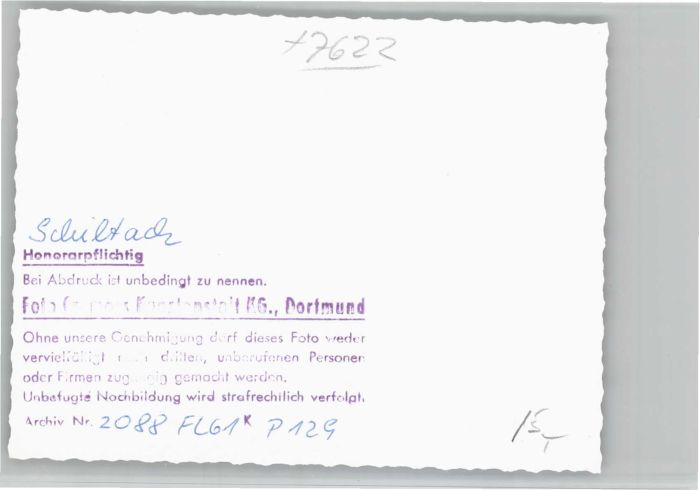 +7622
Schiltach
Honorarpflichtig
Bei Abdruck ist unbedingt zu nennen.
Foto Kunstanstalt KG., Dortmund
Ohne unsere Genehmigung darf dieses Foto weder
vervielfältigt noch dritten, unberufenen Personen
oder Firmen zugängig gemacht werden.
Unbefugte Nachbildung wird strafrechtlich verfolgt.
Archiv Nr. 2088 FL61K P 129